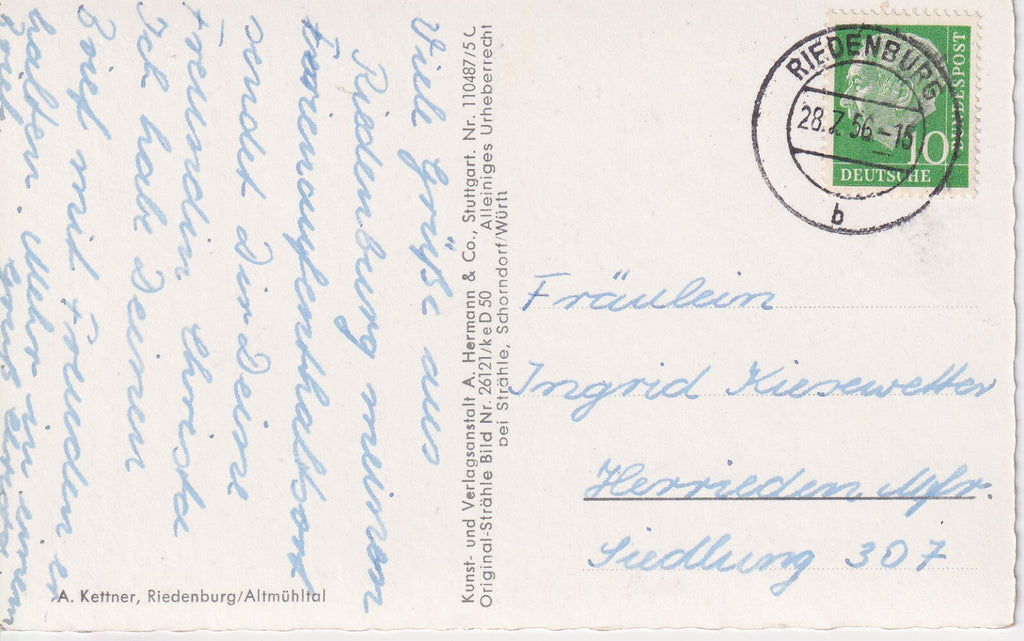 Viele Grüße aus
Riedenburg meinem
Ferienaufenthaltsort
sendet dir Deine
Freundin Christa
Ich habe Deinen
Brief mit Freuden er
halten. Mehr in einem
Kunst- und Verlagsanstalt A. Hermann & Co., Stuttgart. Nr. 110487/5 C
Original-Strähle Bild Nr. 26121/ke D 50 Alleiniges Urheberrecht
bei Strähle, Schorndorf/Württ
A. Kettner, Riedenburg/Altmühltal
RIEDENBURG
28.7.56.-15
b
BUNDESPOST
10
DEUTSCHE
Fräulein
Ingrid Kiesewetter
Herrieden Mfr.
Siedlung 307